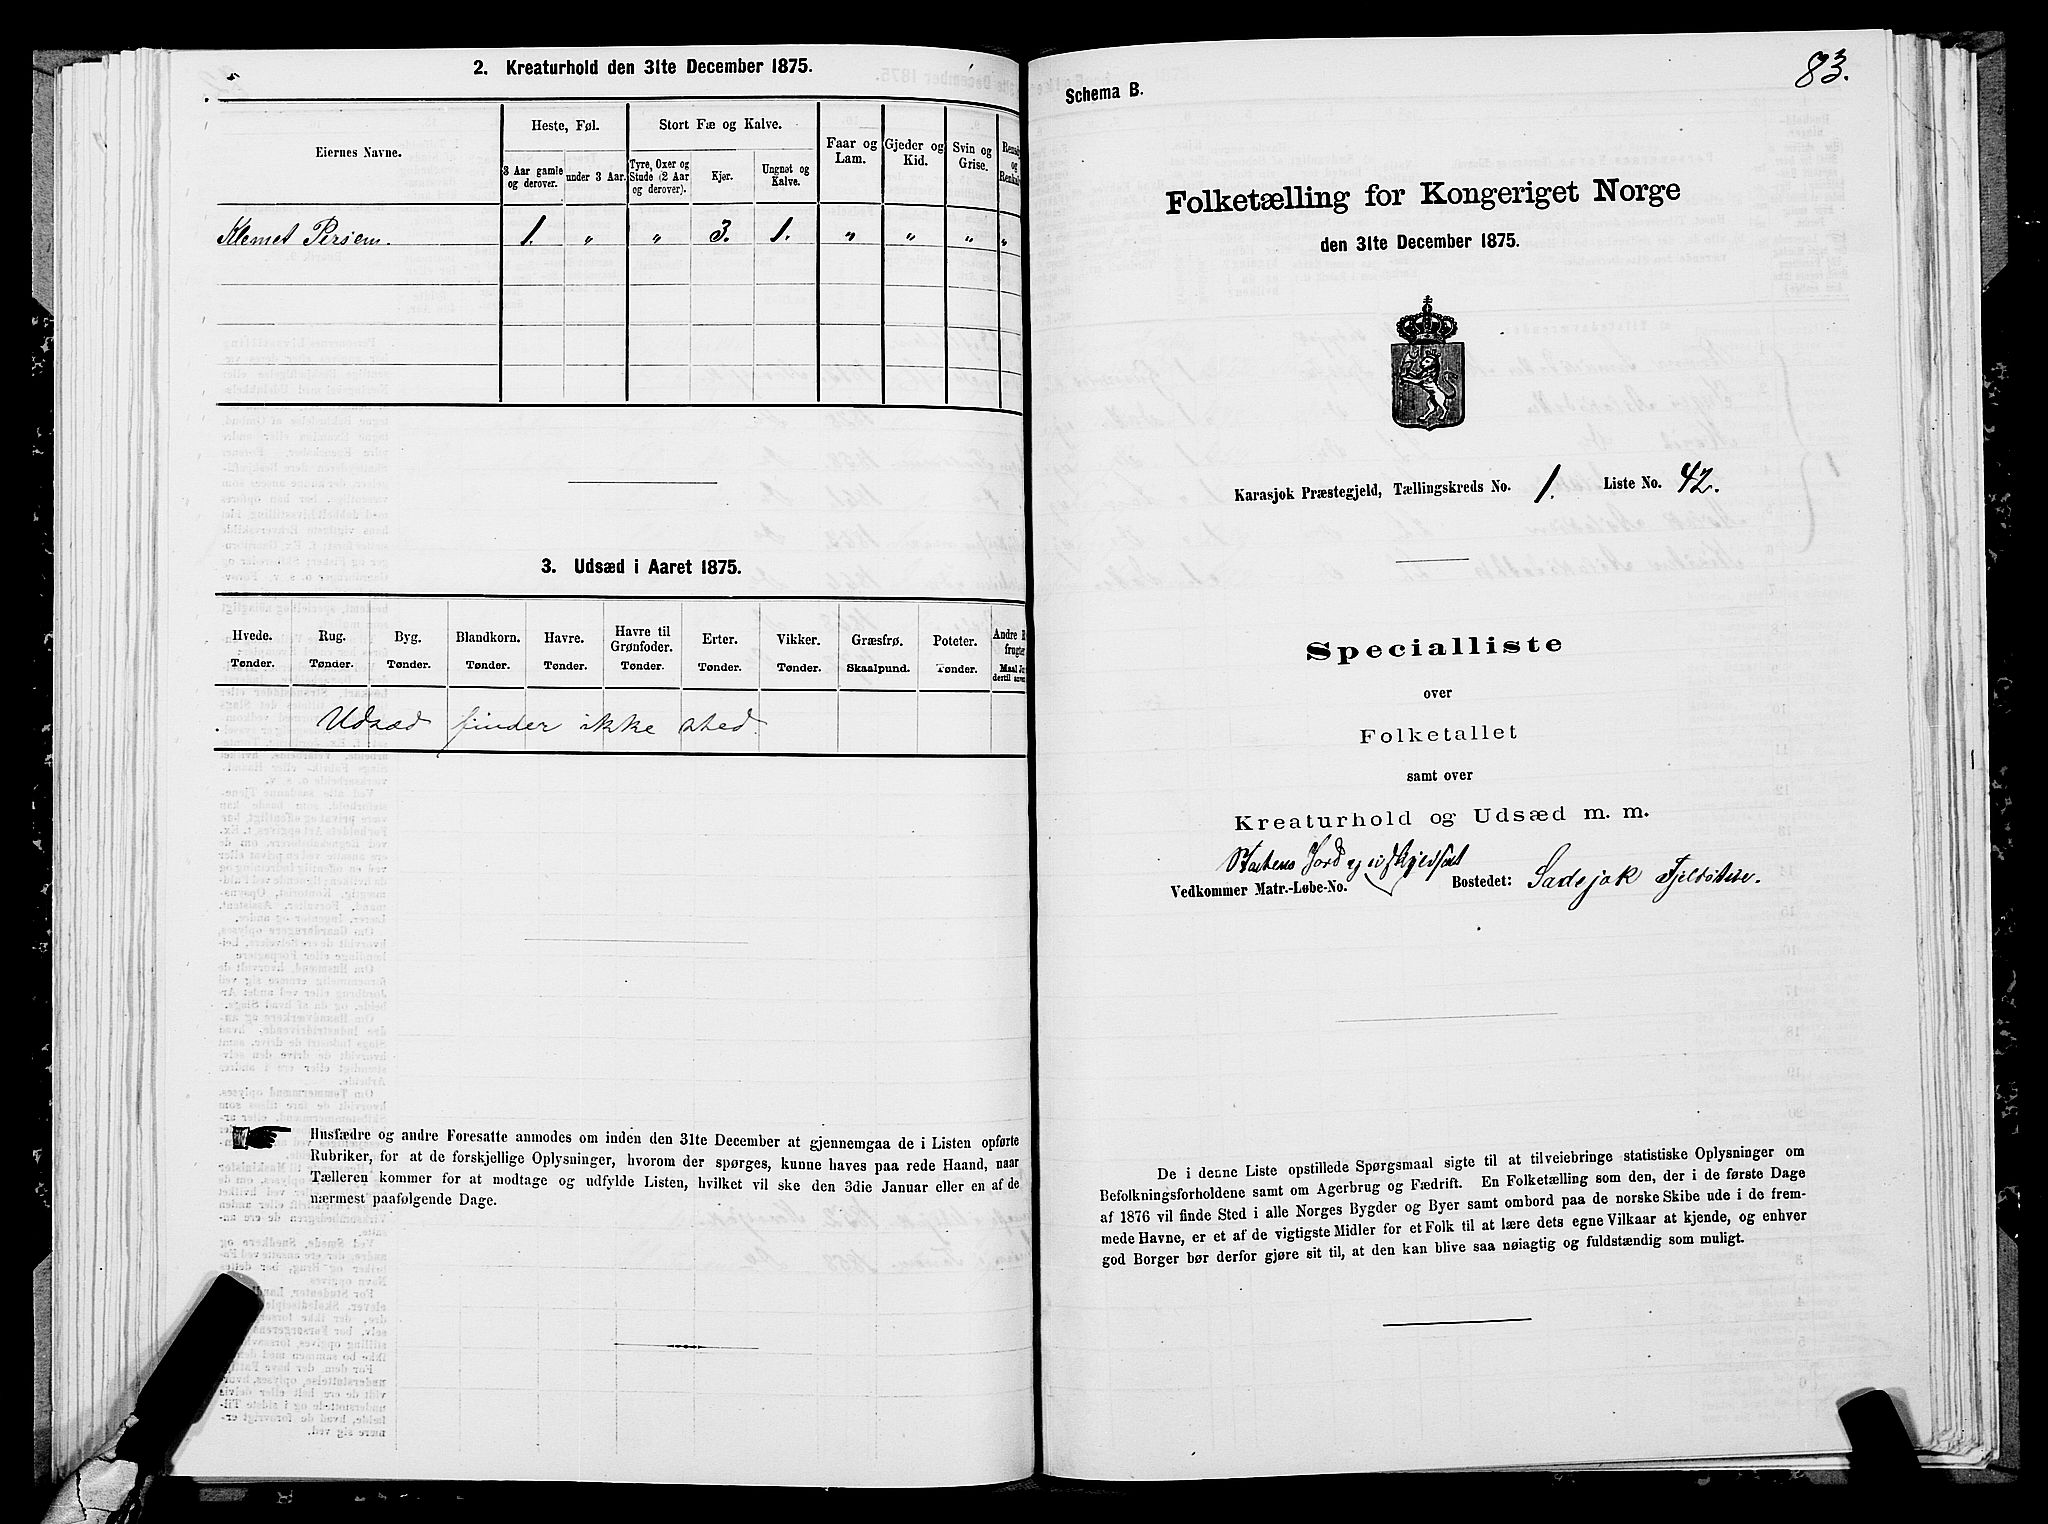 2. Kreaturhold den 31te December 1875.
Eiernes Navne.
Heste, Føl.
Stort Fæ og Kalve.
Faar og Lam.
Gjeder og Kid.
Svin og Grise.
3 Aar gamle og derover.
under 3 Aar.
Tyre, Oxer og Stude (2 Aar og derover).
Kjør.
Ungnøt og Kalve.
Klemet Persen. 1. " " 3. 1. " " " "
3. Udsæd i Aaret 1875.
Hvede. Rug. Byg. Blandkorn. Havre. Havre til Grønfoder. Erter. Vikker. Græsfrø. Poteter. Andre
Tønder. Tønder. Tønder. Tønder. Tønder. Tønder. Tønder. Tønder. Skaalpund. Tønder.
Udsæd finder ikke sted.
Husfædre og andre Foresatte anmodes om inden den 31te December at gjennemgaa de i Listen opførte
Rubriker, for at de forskjellige Oplysninger, hvorom der spørges, kunne haves paa rede Haand, naar
Tælleren kommer for at modtage og udfylde Listen, hvilket vil ske den 3die Januar eller en af de
nærmest paafølgende Dage.
83.
Schema B.
Folketælling for Kongeriget Norge
den 31te December 1875.
Karasjok Præstegjeld, Tællingskreds No. 1. Liste No. 42.
Specialliste
over
Folketallet
samt over
Kreaturhold og Udsæd m. m.
Statens Jord
Vedkommer Matr.-Løbe-No.
Bostedet: Sadejok Fjeldstue.
De i denne Liste opstillede Spørgsmaal sigte til at tilveiebringe statistiske Oplysninger om
Befolkningsforholdene samt om Agerbrug og Fædrift. En Folketælling som den, der i de første Dage
af 1876 vil finde Sted i alle Norges Bygder og Byer samt ombord paa de norske Skibe ude i de frem-
mede Havne, er et af de vigtigste Midler for et Folk til at lære dets egne Vilkaar at kjende, og enhver
god Borger bør derfor gjøre sit til, at den kan blive saa nøiagtig og fuldstændig som muligt.